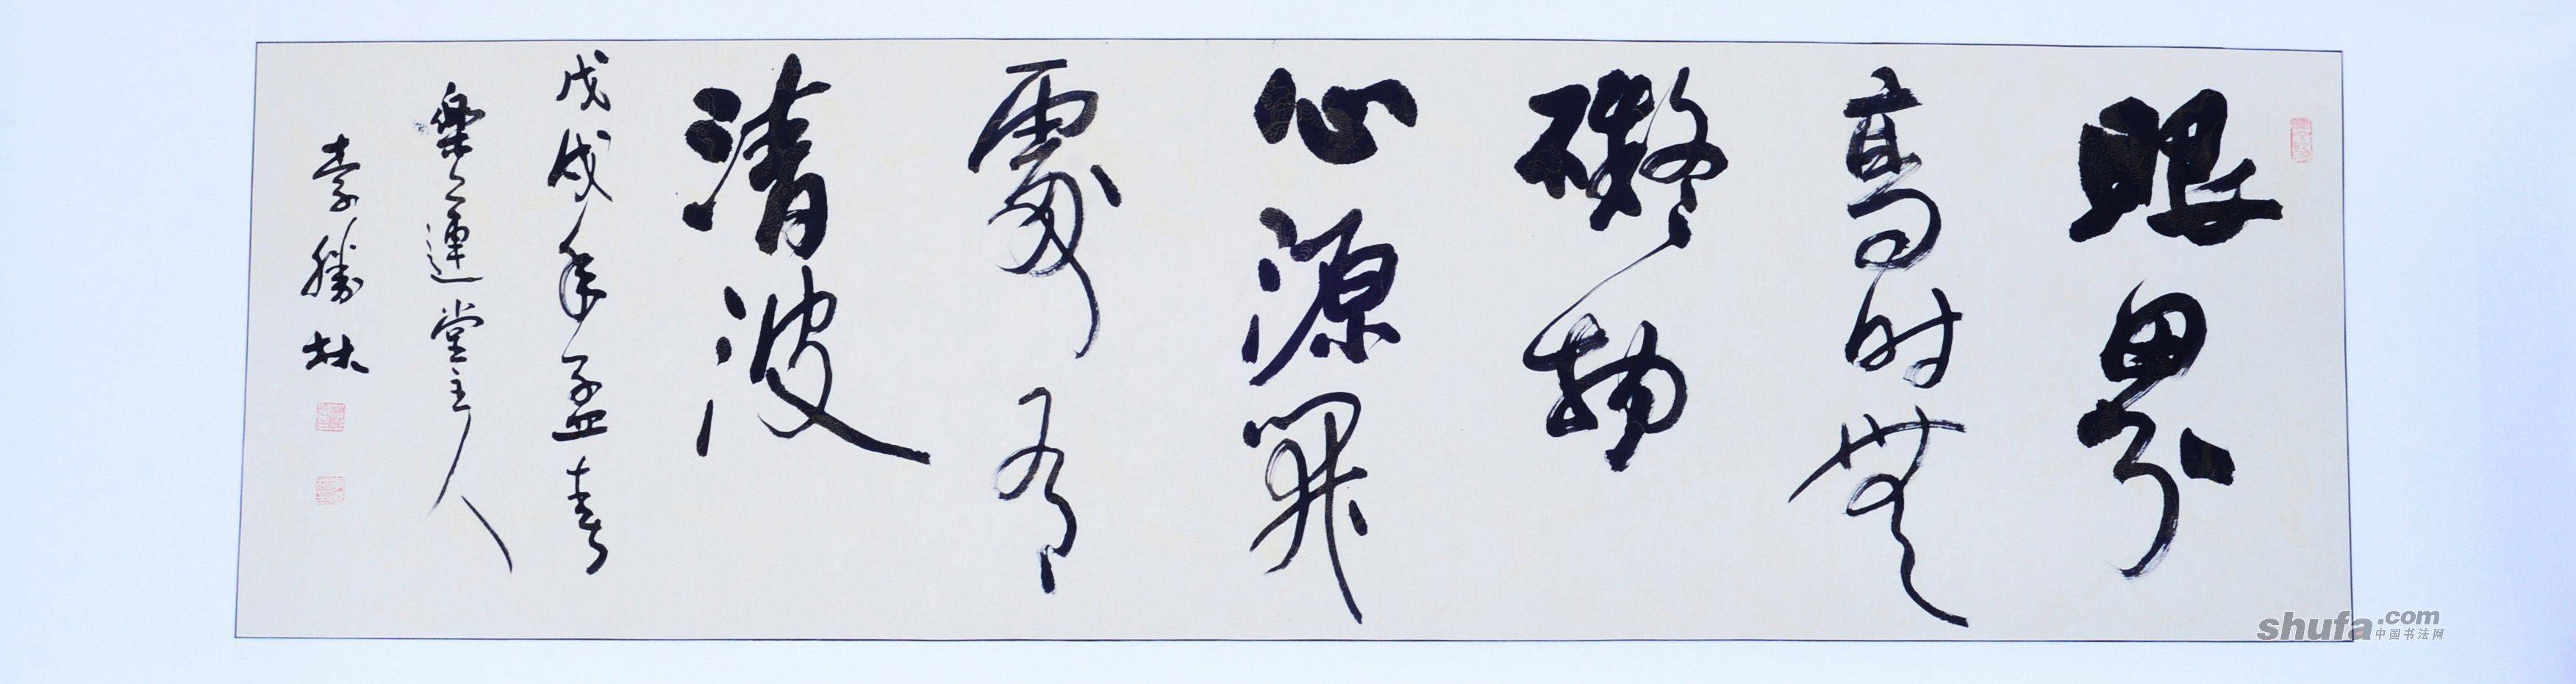 眼界
高时無
礙物
心源開
處有
清波
戊戌年孟春
樂之蓮堂主人
李勝林
shufa.com
中国书法网